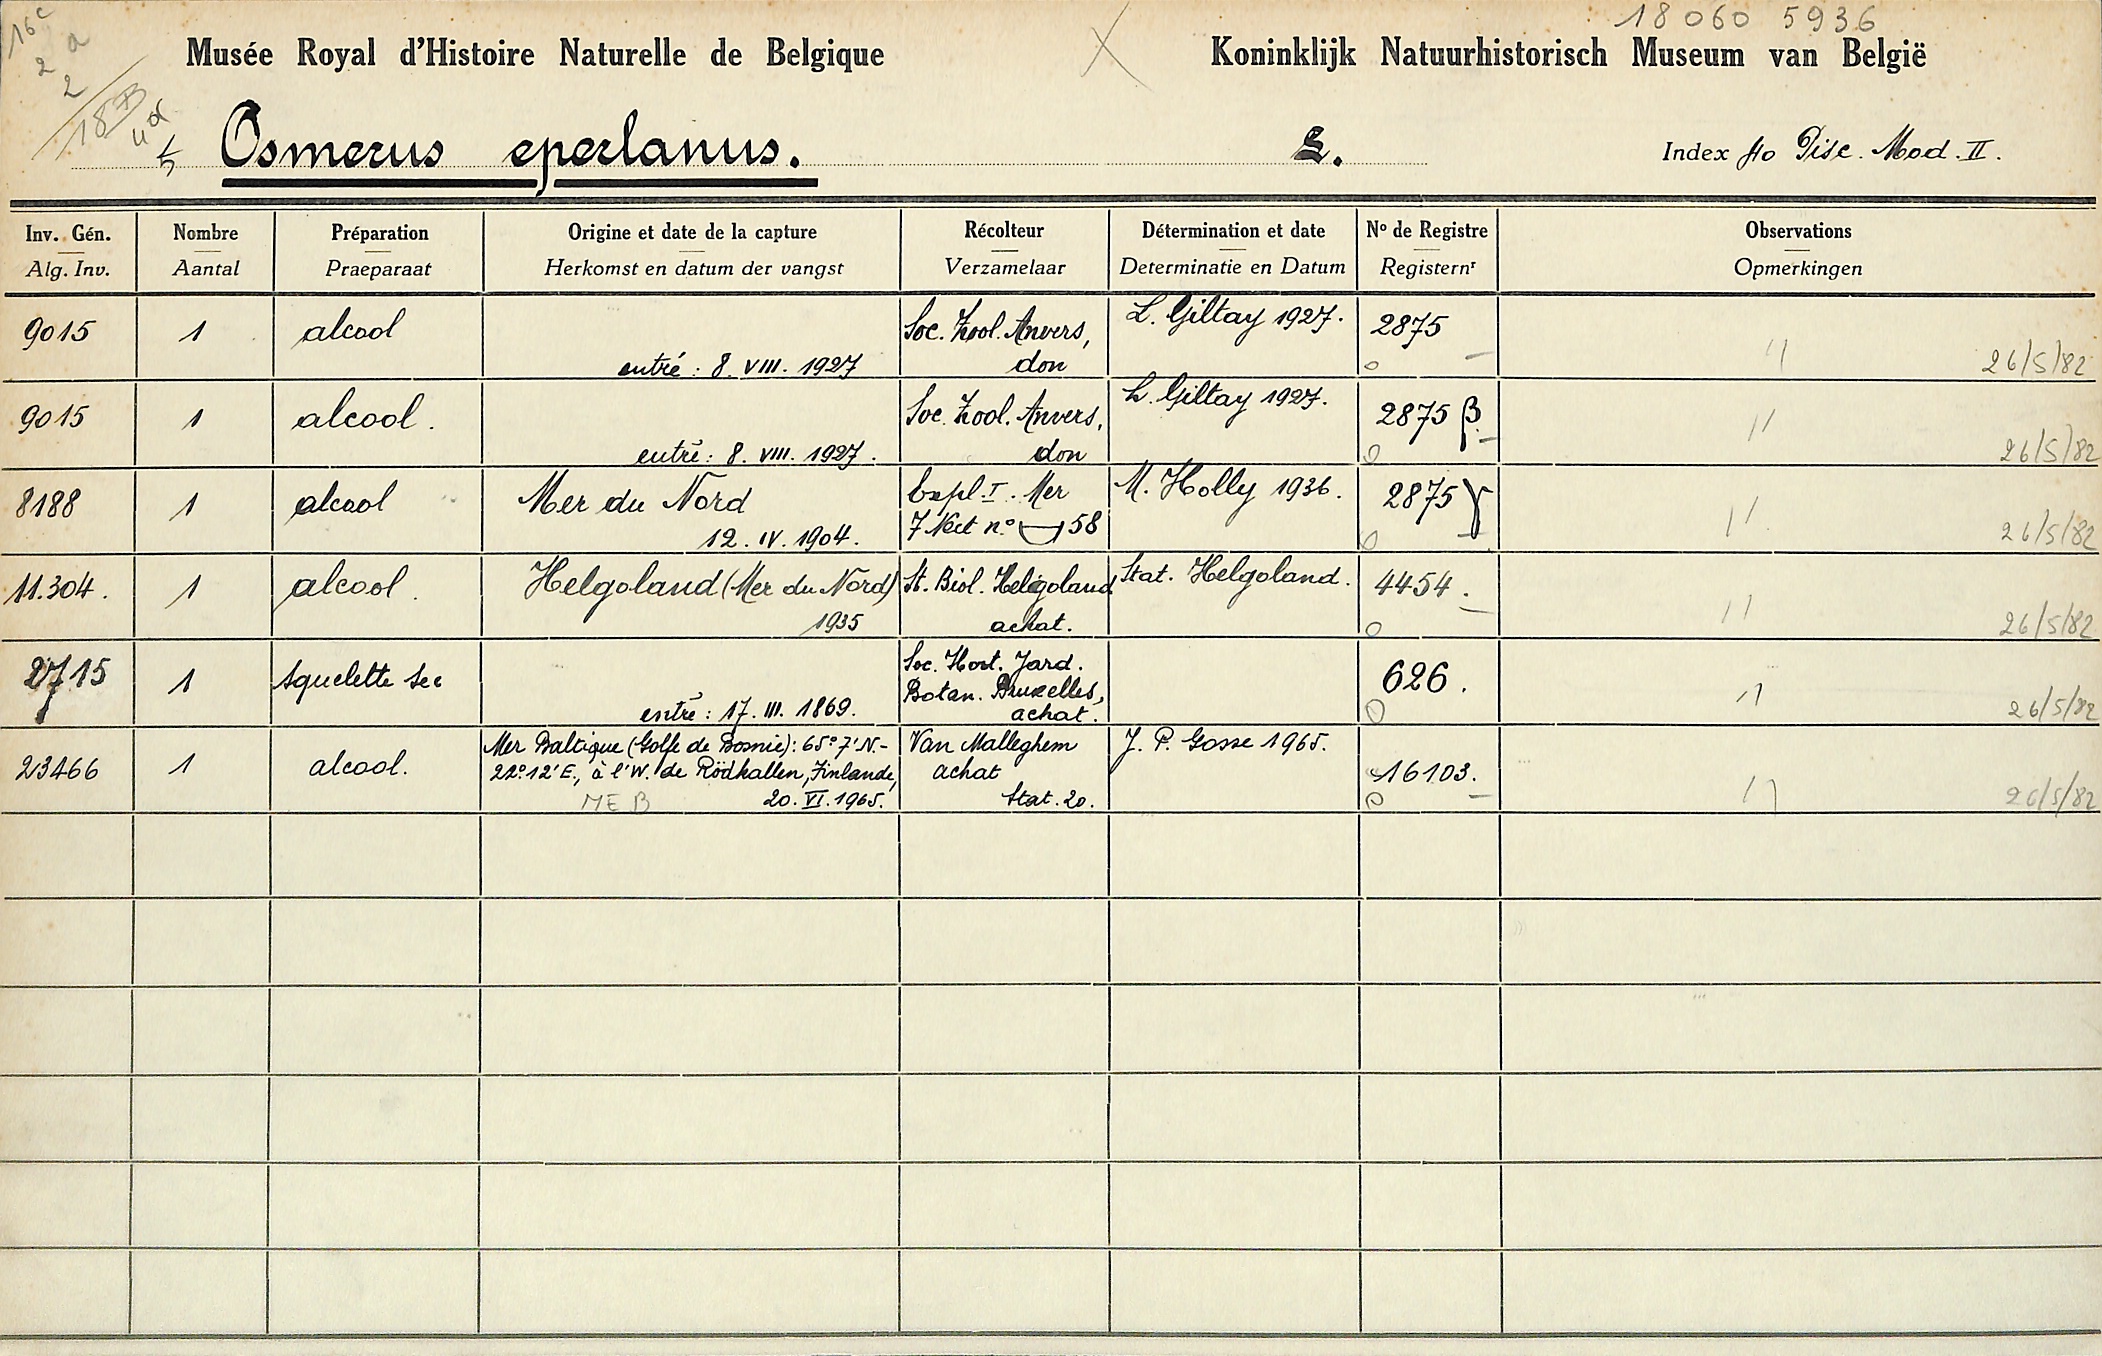 18060 5936
Musée Royal d'Histoire Naturelle de Belgique
Koninklijk Natuurhistorisch Museum van België
Osmerus eperlanus. L.
Index fio Pisc. Mod. II.
Inv. Gén. Nombre Préparation Origine et date de la capture Récolteur Détermination et date No de Registre Observations
Alg. Inv. Aantal Praeparaat Herkomst en datum der vangst Verzamelaar Determinatie en Datum Registernr Opmerkingen
9015 1 alcool Soc. Zool. Anvers, L. Giltay 1927. 2875 "
entré : 8. VIII. 1927 don 26/5/82
9015 1 alcool. Soc. Zool. Anvers, L. Giltay 1927. 2875 β. "
entré : 8. VIII. 1927. don 26/5/82
8188 1 alcool Mer du Nord Expl. I. Mer M. Holly 1936. 2875 γ "
12. IV. 1904. n° 58 26/5/82
11.304. 1 alcool. Helgoland (Mer du Nord) St. Biol. Helgoland Stat. Helgoland. 4454. "
1935 achat. 26/5/82
2715 1 squelette sec Soc. Hort. Jard. 626. "
Botan. Bruxelles,
entré : 17. III. 1869. achat. 26/5/82
23466 1 alcool. Mer Baltique (Golfe de Bosnie): 65° 7' N.- Van Malleghem J. P. Gosse 1965. 16103. "
22° 12' E., à l'W. de Rödkallen, Finlande, achat
MEB 20. VI. 1965. Stat. 20. 26/5/82